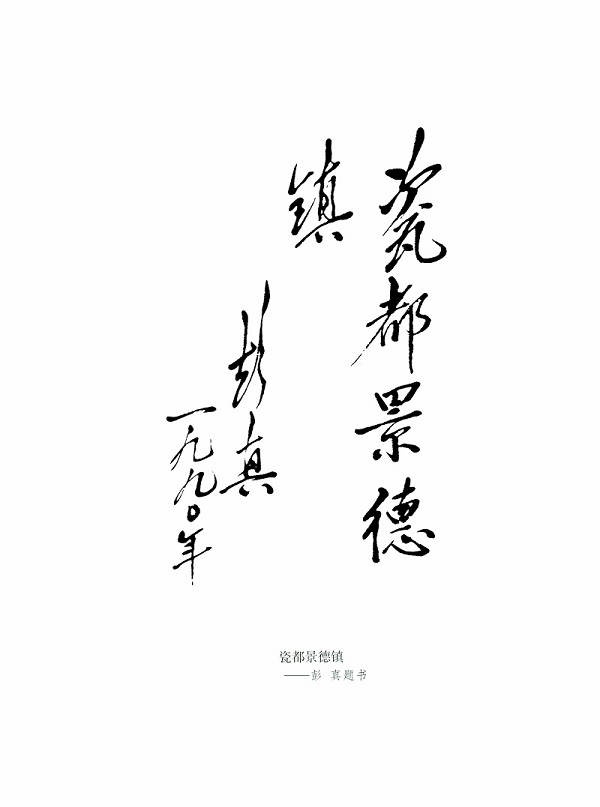 瓷都景德
镇
彭真
一九九〇年
瓷都景德镇
——彭 真题书